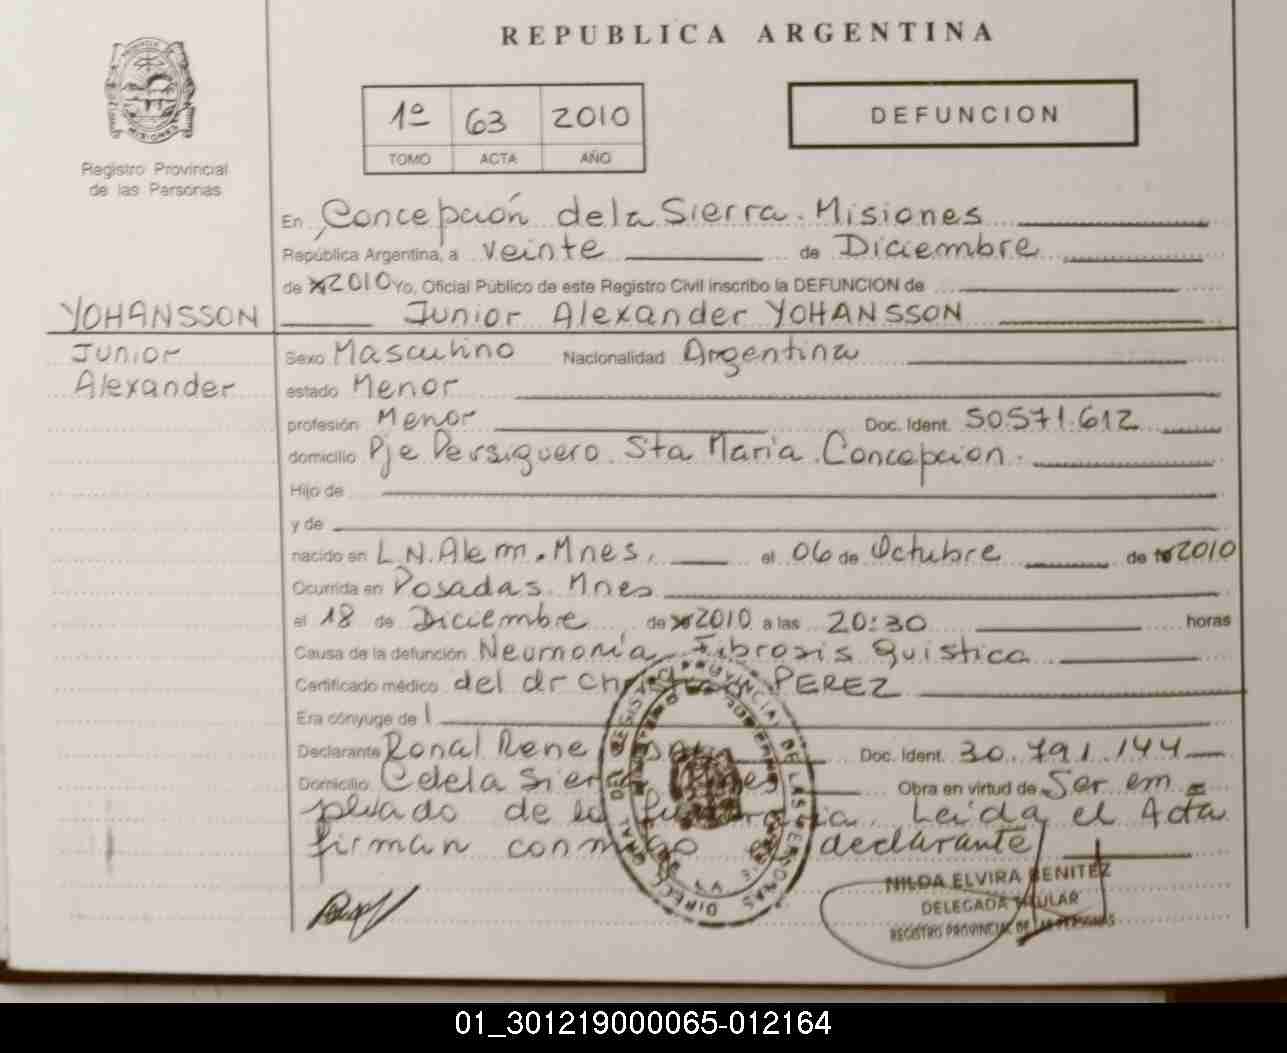 REPUBLICA ARGENTINA
1º 63 2010
TOMO ACTA AÑO
DEFUNCION
Registro Provincial
de las Personas
En Concepción de la Sierra. Misiones
República Argentina, a veinte de Diciembre
de 2010 Yo, Oficial Público de este Registro Civil inscribo la DEFUNCION de
YOHANSSON Junior Alexander YOHANSSON
Junior Sexo Masculino Nacionalidad Argentina
Alexander estado Menor
profesión Menor Doc. Ident. 50.571.612
domicilio Pje Persiguero. Sta Maria. Concepcion.
Hijo de
y de
nacido en L.N.Alem. Mnes. el 06 de Octubre de 2010
Ocurrida en Posadas. Mnes
el 18 de Diciembre de 2010 a las 20:30 horas
Causa de la defunción Neumonía Fibrosis Quistica
Certificado médico del dr PEREZ
Era cónyuge de
Declarante Ronal Rene Doc. Ident. 30.791.144
Domicilio C de la Sierra Mnes Obra en virtud de Ser em=
pleado de la funeraria. Leida el Acta
firman conmigo el declarante
DIRECCION GENERAL DEL REGISTRO PROVINCIAL DE LAS PERSONAS
NILDA ELVIRA BENITEZ
DELEGADA TITULAR
REGISTRO PROVINCIAL DE LAS PERSONAS
01_301219000065-012164